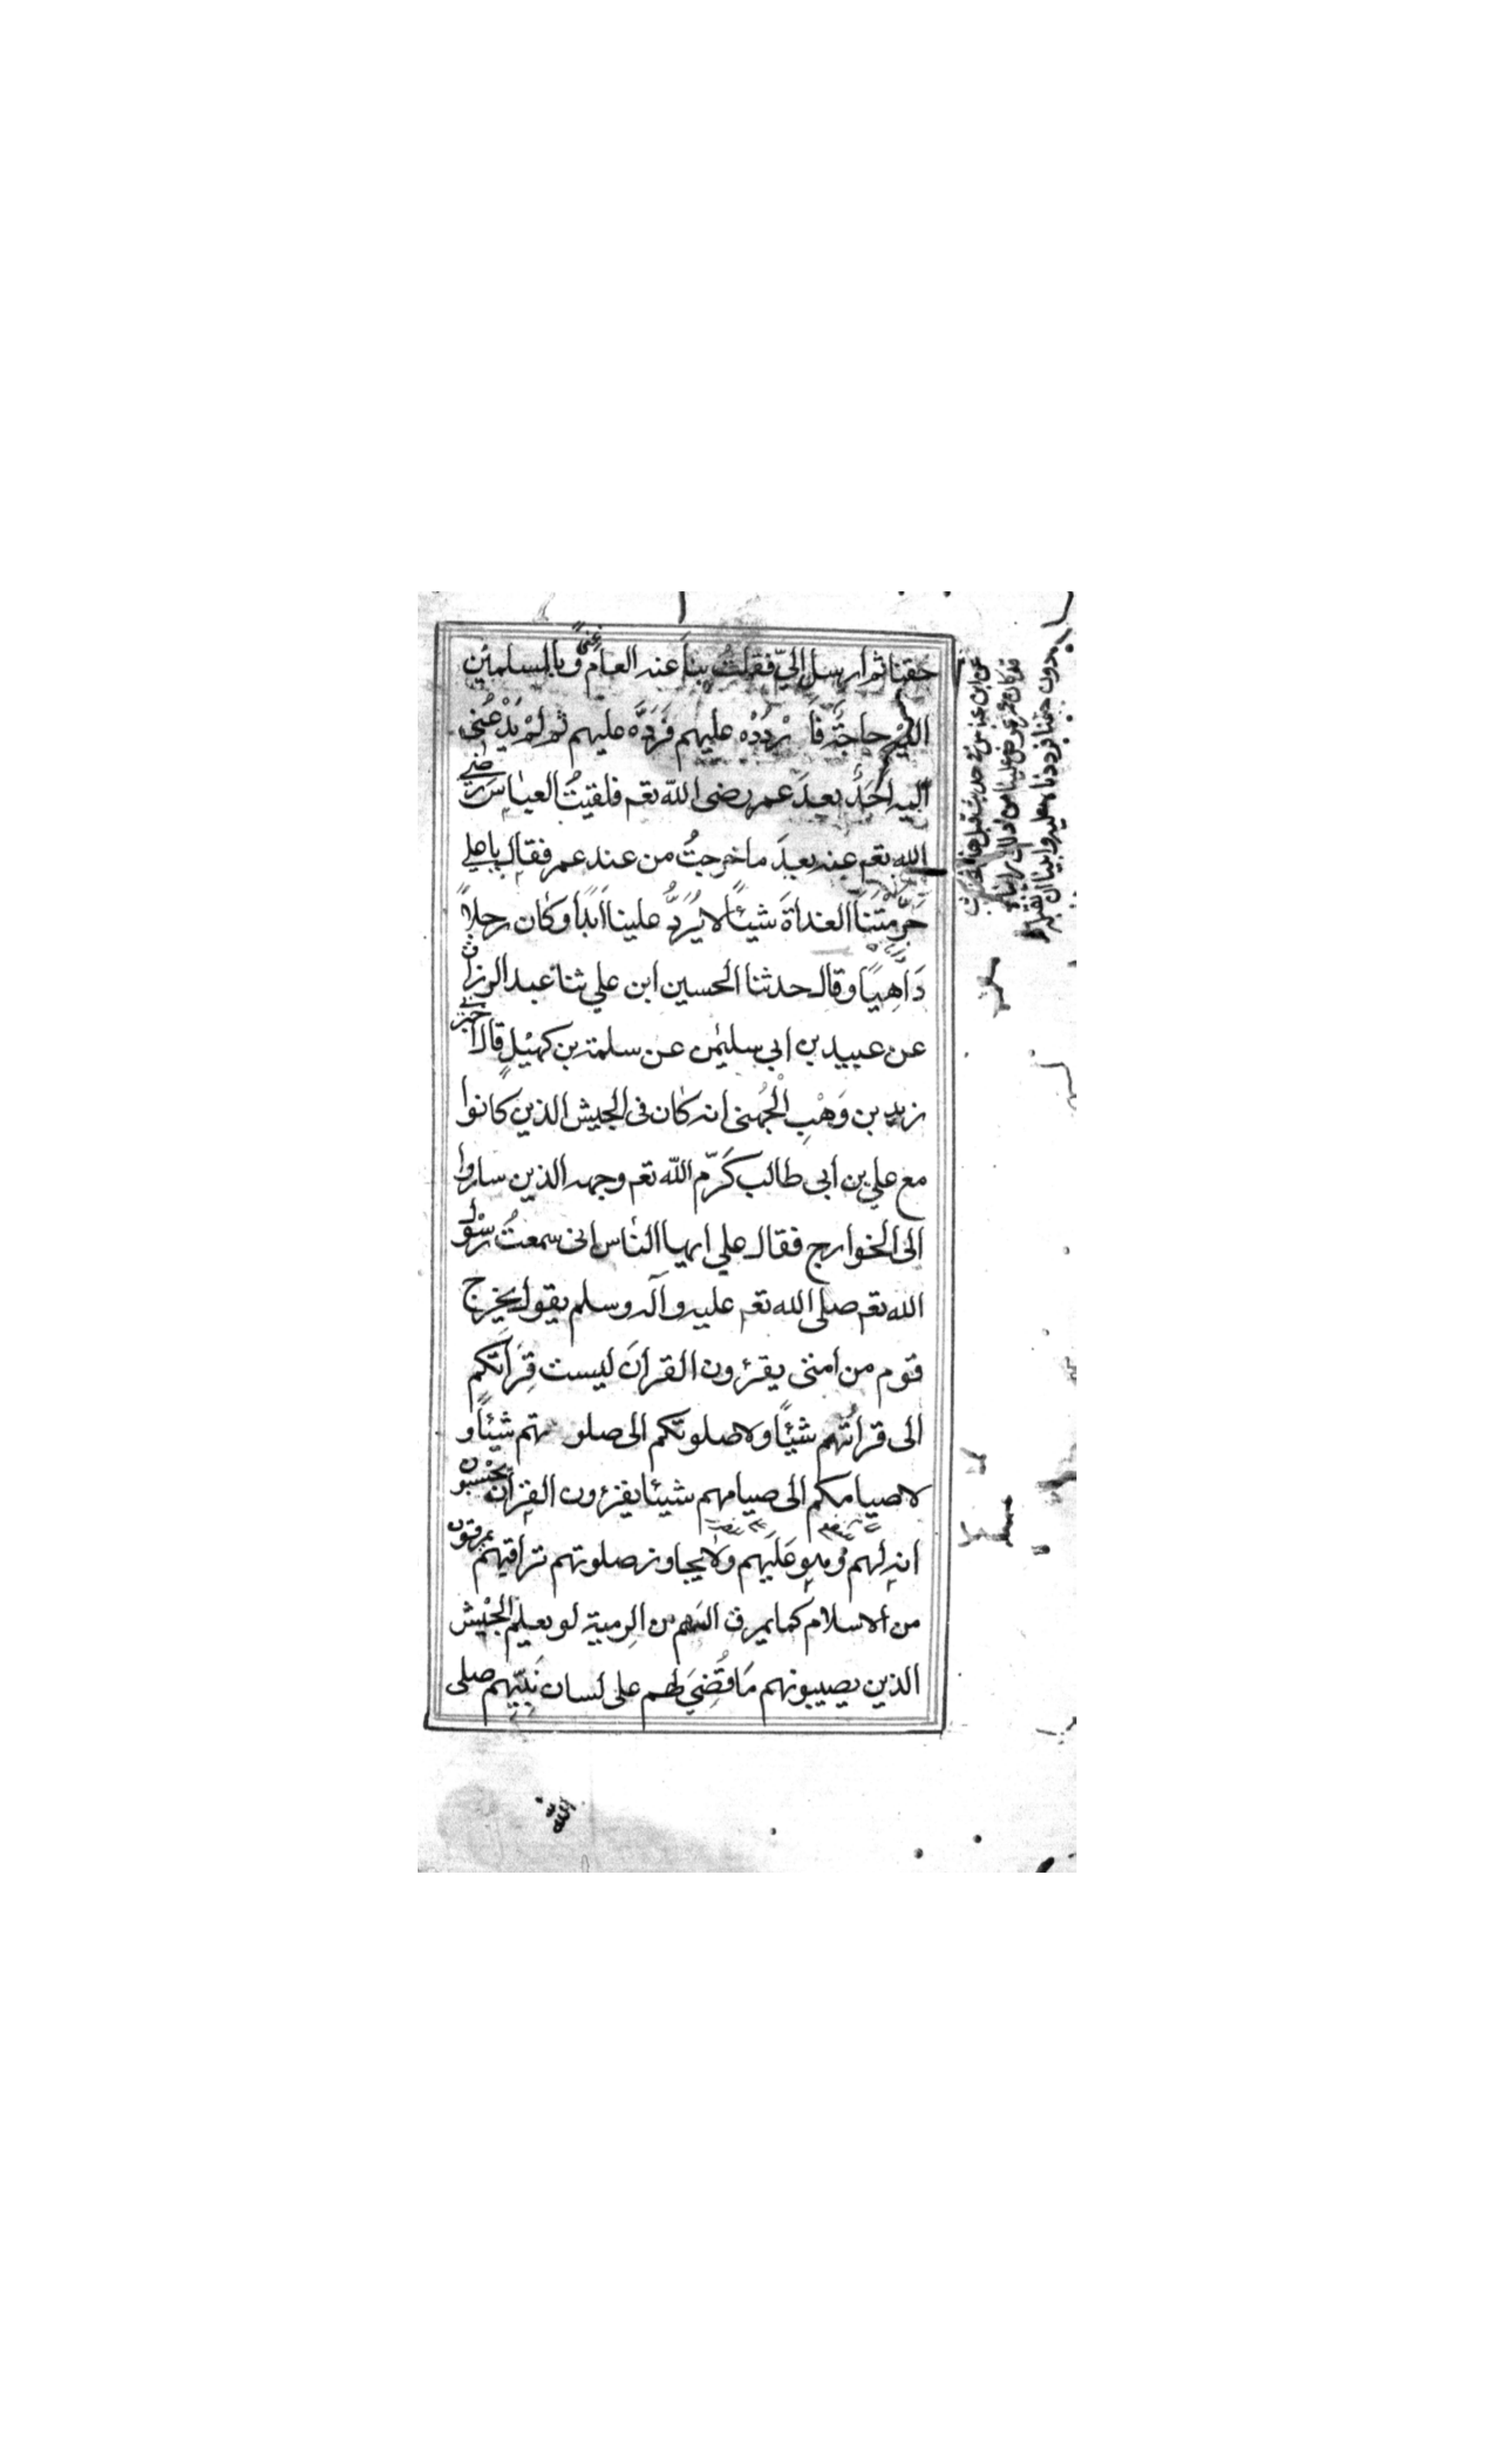 حقنا ثم ارسل اليّ فقلت بنا عنه العام غنى وبالمسلمين
اليه حاجة فاردده عليهم فَرَدَّه عليهم ثم لم يَدْعُنى
اليه احدٌ بعدَ عمر رضى الله تعم فلقيتُ العباس رضي
الله تعم عنه بعدَ ما خرجتُ من عند عمر فقال يا على
حَرَّمْتَنَا الغداةَ شيئًا لا يُرَدُّ علينا اَبَدًا وكان رجلًا
دَاهِيًا وقال حدثنا الحسين ابن علي ثنا عبد الرزاق
عن عبيد بن ابي سليمن عن سلمة بن كهيْل قال اخبرنى
زيد بن وَهْبِ الْجُهنى انه كان فى الجيش الذين كانوا
مع علي بن ابى طالب كَرّم الله تعم وجهه الذين ساروا
الى الخوارج فقال علي ايها الناس انى سمعتُ رسُوْل
الله تعم صلى الله تعم عليه وآله وسلم يقول يخرج
قوم من امتى يقرؤن القرانَ ليست قِرَاتكم
الى قراتهم شيئًا ولا صلوتكم الى صلو تهم شيئًا و
لا صيامكم الى صيامهم شيئا يقرؤن القران يحسبون
انه لهم وهو عَلَيهم ولا يجاوز صلوتهم تراقيهم يمرقون
من الاسلام كما يمرق السهم من الرمية لو يعلم الجيش
الذين يصيبونهم مَا قُضِيَ لهم على لسان نَبِيّهم صلى
الله